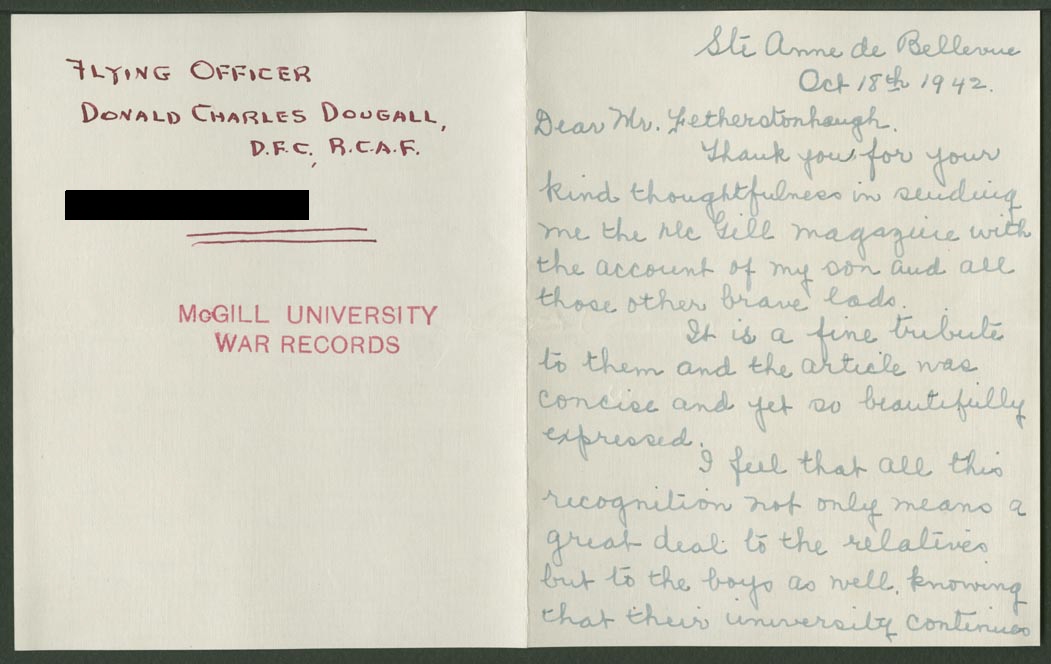 FLYING OFFICER
DONALD CHARLES DOUGALL,
D.F.C., R.C.A.F.
McGILL UNIVERSITY
WAR RECORDS
Ste Anne de Bellevue
Oct 18th 1942.
Dear Mr. Fetherstonhaugh.
Thank you for your
kind thoughtfulness in sending
me the Mc Gill magazine with
the account of my son and all
those other brave lads.
It is a fine tribute
to them and the article was
concise and yet so beautifully
expressed.
I feel that all this
recognition not only means a
great deal to the relatives
but to the boys as well, knowing
that their university continues